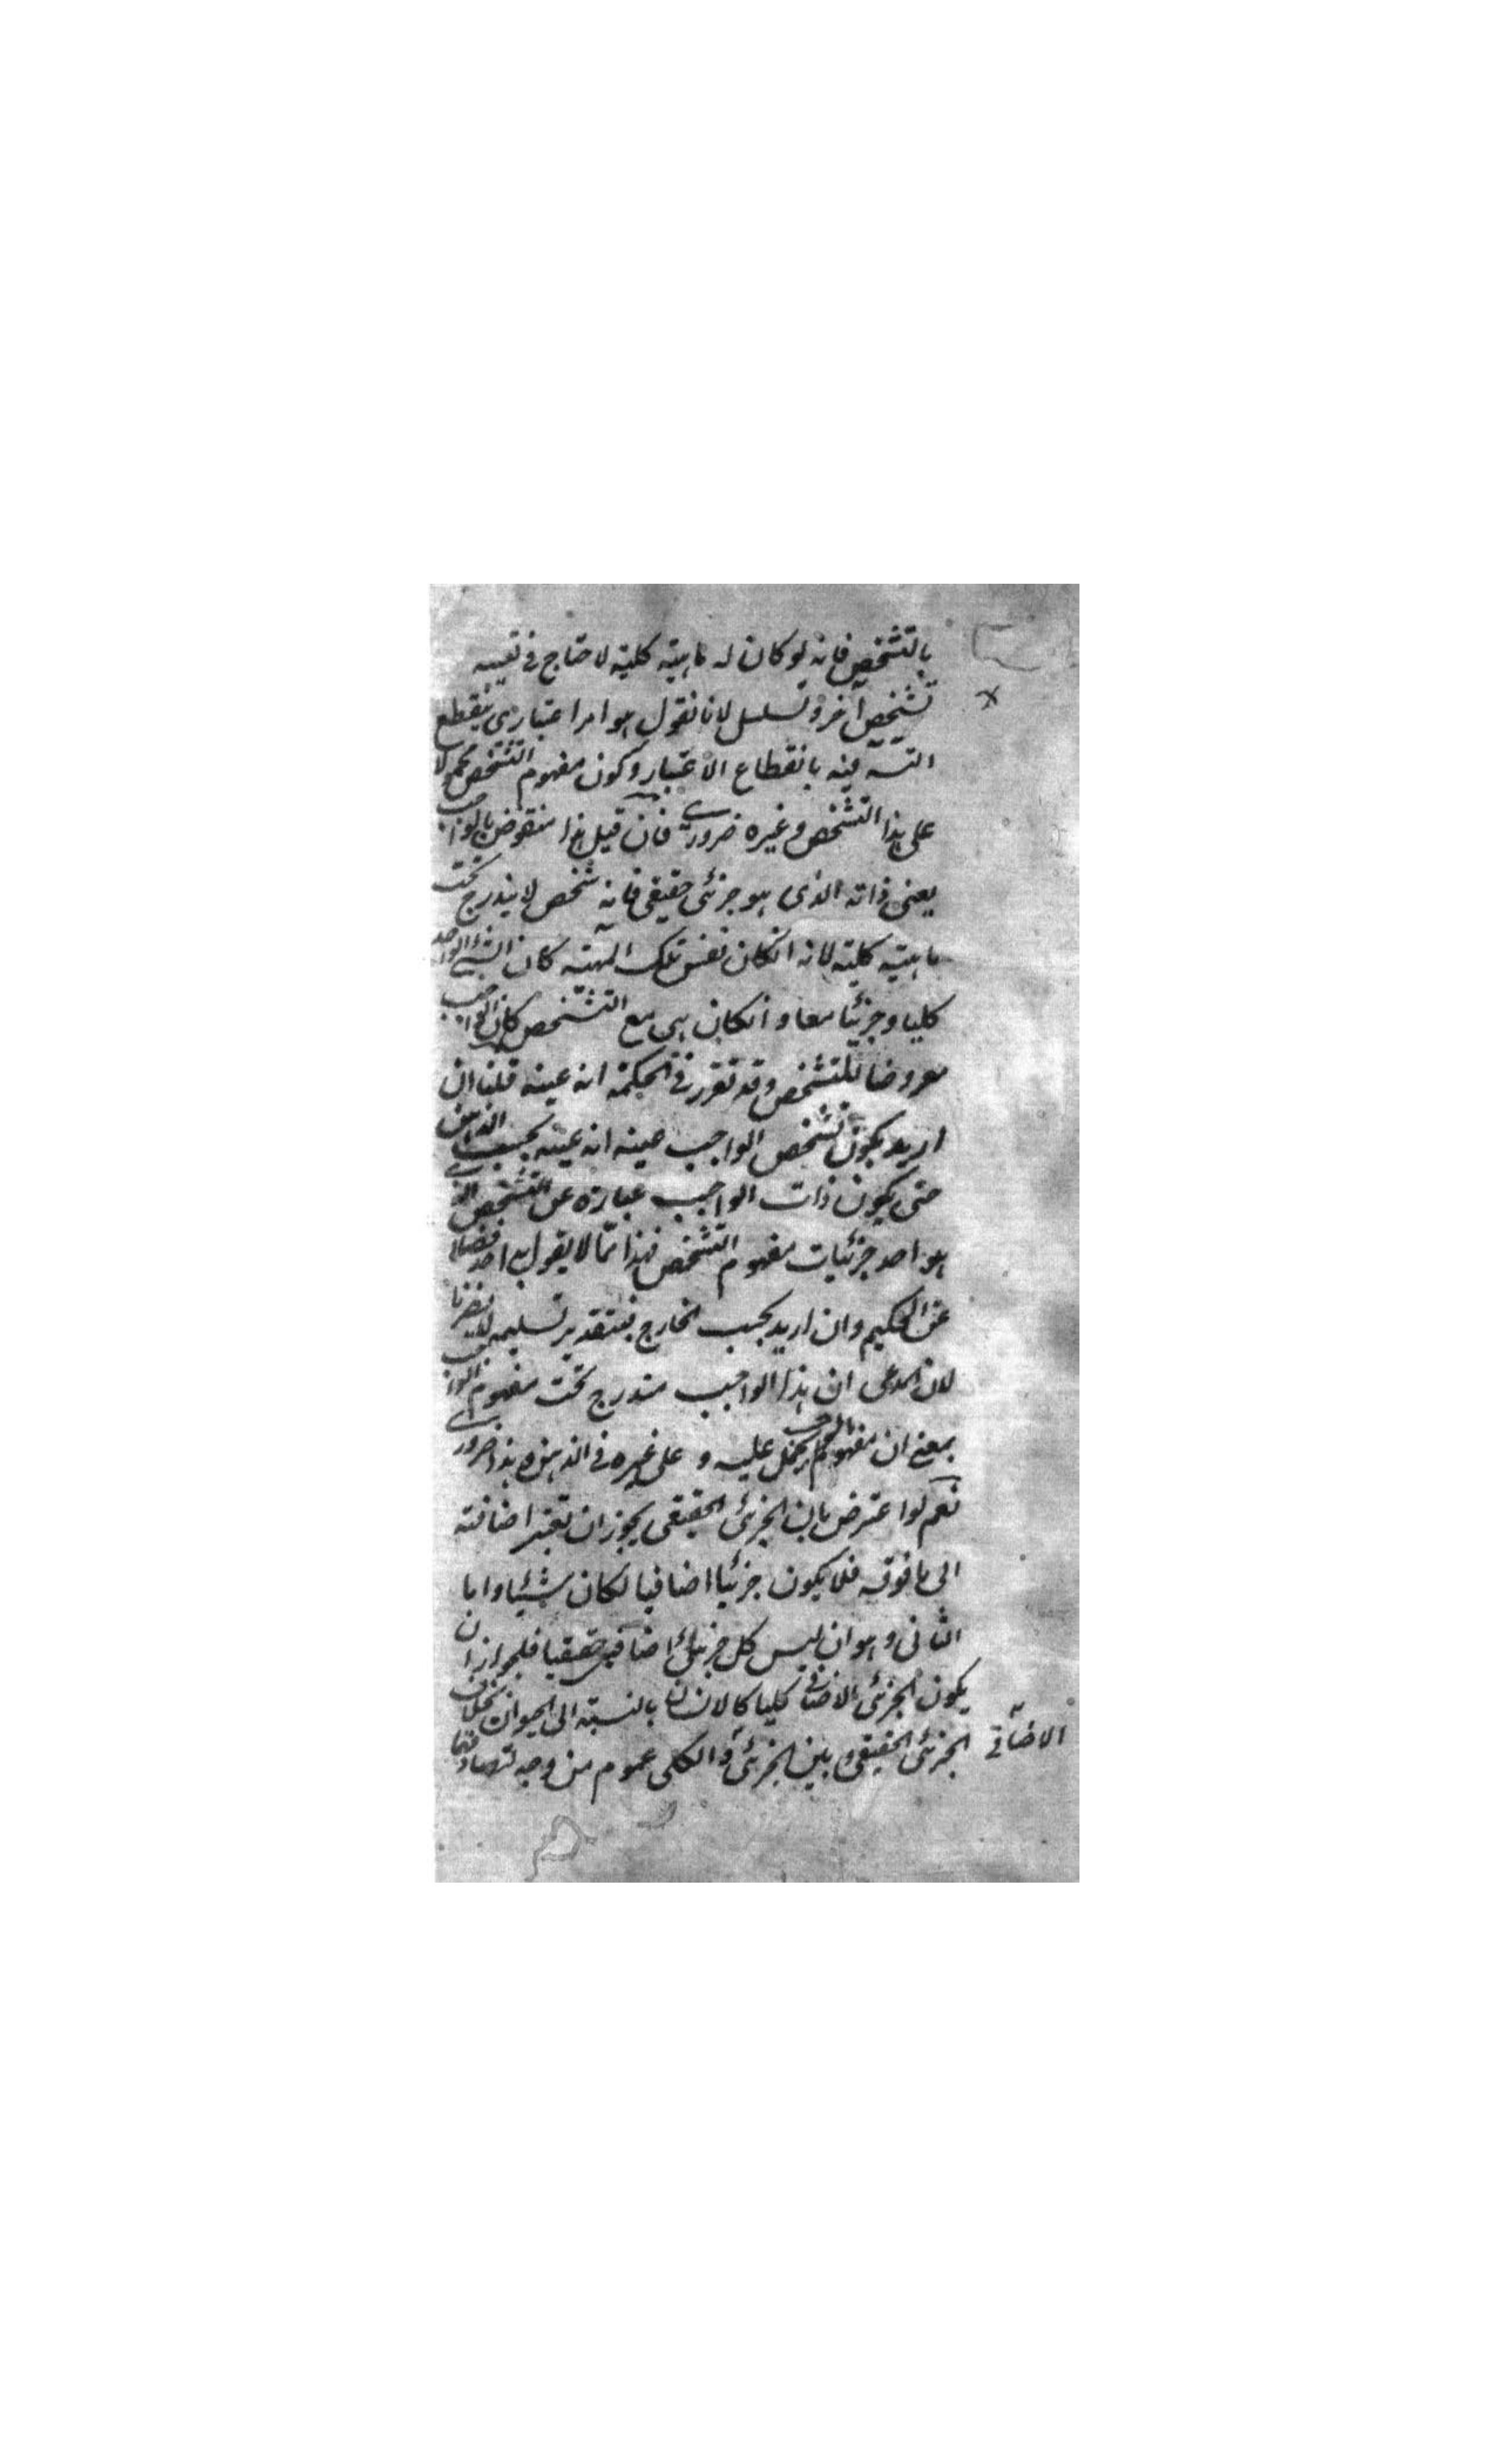 بالتشخص فانه لو كان له ماهية كلية لاحتاج فى تعينه
تشخص آخر وتسلسل لانا نقول هو امر اعتبارى ينقطع
التسه فيه بانقطاع الاعتبار وكون مفهوم التشخص محمولا
على هذا التشخص وغيره ضرورى فان قيل هذا منقوض بالواجب
يعنى ذاته الذى هو جزئى حقيقى فانه شخص لا يندرج تحت
ماهية كلية لانه انكان نفس تلك المهية كان الشئ الواحد
كليا وجزئيا معا وانكان هى مع التشخص كان الواجب
معروضا للتشخص وقد تقرر فى الحكمة انه عينه قلنا ان
اريد بكون تشخص الواجب عينه انه عينه بحسب الذهن
حتى يكون ذات الواجب عبارة عن التشخص الذى
هو احد جزئيات مفهوم التشخص فهذا مما لا يقول به احد فضلا
عن الحكيم وان اريد بحسب الخارج فبتقدير تسليمه لا يضرنا
لان المدعى ان هذا الواجب مندرج تحت مفهوم الواجب
بمعنى ان مفهوم الواجب يحمل عليه و على غيره فى الذهن وهذا ضرورى
نعم لو اعترض بان الجزئى الحقيقى يجوز ان تعتبر اضافته
الى ما فوقه فلا يكون جزئيا اضافيا لكان شيئا واما
الثانى وهو ان ليس كل جزئى اضافى حقيقيا فلجواز ان
يكون الجزئى الاضافى كليا كالانسان بالنسبة الى الحيوان بخلاف
الجزئى الحقيقى وبين الجزئى و الكلى عموم من وجه لتصادقهما
الاضافى